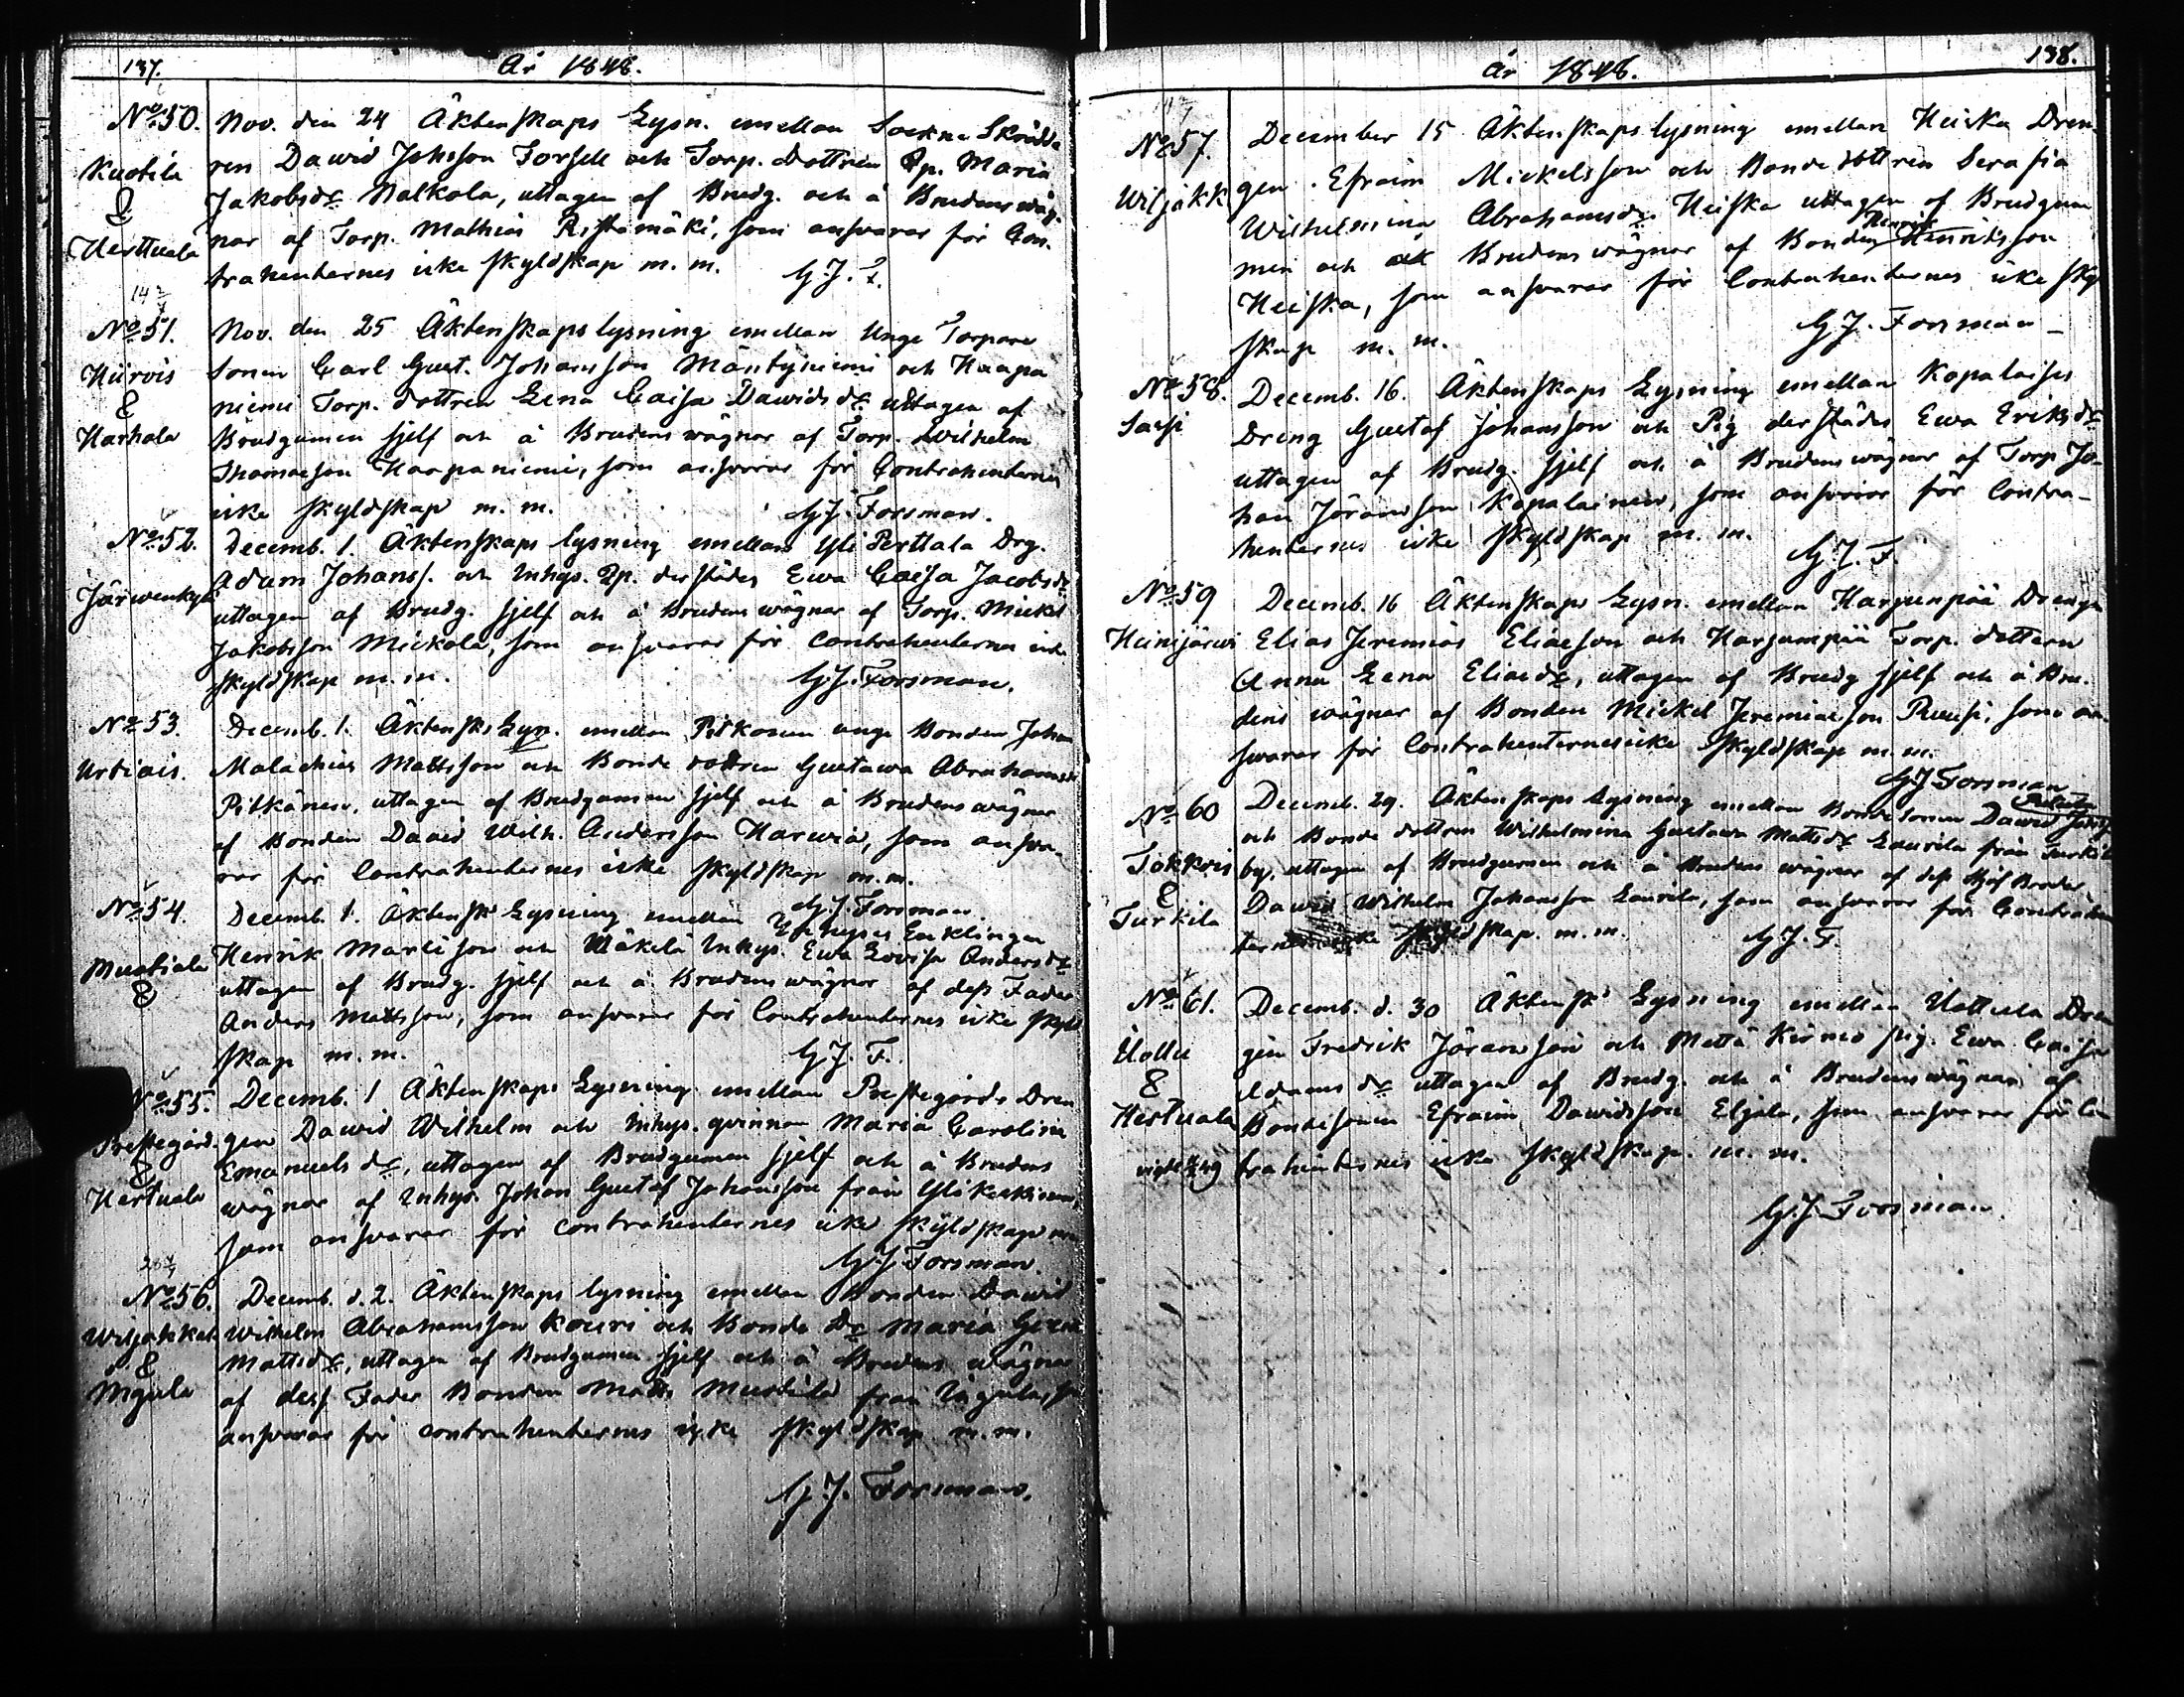 137.
År 1848.
No 50. Nov. den 24 Äktenskaps Lysn. emellan Sockne Skrädda
Kuotila ren Dawid Johsson Forsell och Torp. dottren Qp. Maria
& Jakobsdr Nalkola, uttagen af Brudg. och å Brudens wäg-
Herttuala nar af Torp. Mathias Ristamäki, som answarar för Con-
trahenternes icke skyldskap m. m. G. J. F.
No 51. Nov. den 25 Äktenskaps lysning emellan Unge Torpare
Hiirois sonen Carl Gust. Johansson Mäntyniemi och Haapa
& niemi Torp. dottren Lena Caisa Dawidsdr uttagen af
Karhula Brudgumen sjelf och å Brudens wägnar af Torp. Wilhelm
Thomasson Haapaniemi, som answarar för Contrahenternes
icke skyldskap m. m. G. J. Forsman.
No 52. Decemb. 1. Äktenskaps lysning emellan Yli Perttala Drg.
Adam Johanss. och Inhys. Qp. derstädes Ewa Caisa Jacobsdr
Järwenkylä uttagen af Brudg. sjelf och å Brudens wägnar af Torp. Mickel
Jakobsson Mickola, som answarar för contrahenternes icke
skyldskap m. m. G. J. Forsman.
No 53. Decemb. 1. Äktensks Lysn. emellan Pitkosen unge Bonden Johan
Urtiais. Malachias Mattsson och Bonde dottren Gustawa Abrahamsdr
Pitkänen, uttagen af Brudgumen sjelf och å Brudens wägnar
af Bonden David Wilh. Andersson Harwia, som answa-
rar för Contrahenternes icke skyldskap m. m.
G. J. Forsman.
No 54. Decemb. 1. Äktensk Lysning emellan Enklingen
Henrik Martisson och Mäkelä Inhys. Ewa Lovisa Andersdr
Mustiala uttagen af Brudg. sjelf och å Brudens wägnar af dess Fader
& Anders Mattsson, som answarar för Contrahenternes icke skyld
skap m. m. G. J. F.
No 55. Decemb. 1 Äktenskaps Lysning emellan Prestegårds Dren
Prestegård gen Dawid Wilhelm och Inhys. qvinnan Maria Carolina
& Emanuelsdr, uttagen af Brudgumen sjelf och å Brudens
Hertuala wägnar af Inhys. Johan Gustaf Johansson från
som answarar för contrahenternes icke skyldskap
G. J. Forsman.
No 56. Decemb. d. 2. Äktenskaps lysning emellan Bonden Dawid
Wiljakkala Wilhelm Abrahamsson Kouri och Bonde Dr Maria
& Mattsdr, uttagen af Brudgumen sjelf och å Brudens wägnar
Mgula af dess Fader Bonden Matts Mustila från
answarar för contrahenternes icke skyldskap m. m.
G. J. Forsman.
138.
År 1848.
No 57. December 15 Äktenskaps lysning emellan Heiska Dren
Wiljakk gen Efraim Mickelsson och Bonde dottren Serafia
Wilhelmina Abrahamsdr Heiska uttagen af Brudgum
men och å Brudens wägnar af Bonden Henrik Henriksson
Heiska, som answarar för Contrahenternes icke skyld
skap m. m. G. J. Forsman
No 58. Decemb. 16. Äktenskaps Lysning emellan Kopalaises
Sassi Dreng Gustaf Johansson och Pig. derstädes Ewa Eriksdr
uttagen af Brudg. sjelf och å Brudens wägnar af Torp Jo-
han Jöransson Kopalainen, som answarar för Contra-
henternes icke skyldskap m. m. G. J. F.
No 59 Decemb. 16 Äktenskaps Lysn. emellan Harjunpää Drengen
Heinijärwi Elias Jeremias Eliaeson och Harjunpää Torp. dottern
Anna Lena Eliaedr, uttagen af Brudg sjelf och å Bru-
dens wägnar af Bonden Mickel Jeremiaeson Ruusi, som an-
swarar för Contrahenternes icke skyldskap m. m.
G J Forsman
No 60 Decemb. 29. Äktenskaps Lysning emellan Bonde sonen Dawid
och Bonde dottren Wilhelmina Gustawa Mattsdr Laurila från Turkila
Tokkois by, uttagen af Brudgumen och å Brudens wägnar af dess Stjuf Broder
& Dawid Wilhelm Johansson Laurila, som answarar för Contrahen
Turkila ternes icke skyldskap. m. m. G. J. F.
No 61. Decemb. d. 30 Äktensk Lysning emellan Uottula Dren
Uollu gen Fredrik Jöransson och Mattä Pig. Ewa Caisa
& Adamsdr uttagen af Brudg. och å Brudens wägnar af
Hertuala Bondesonen Efraim Dawidsson Eljala, som answarar för Con
trahenternes icke skyldskap. m. m.
G. J. Forsman.